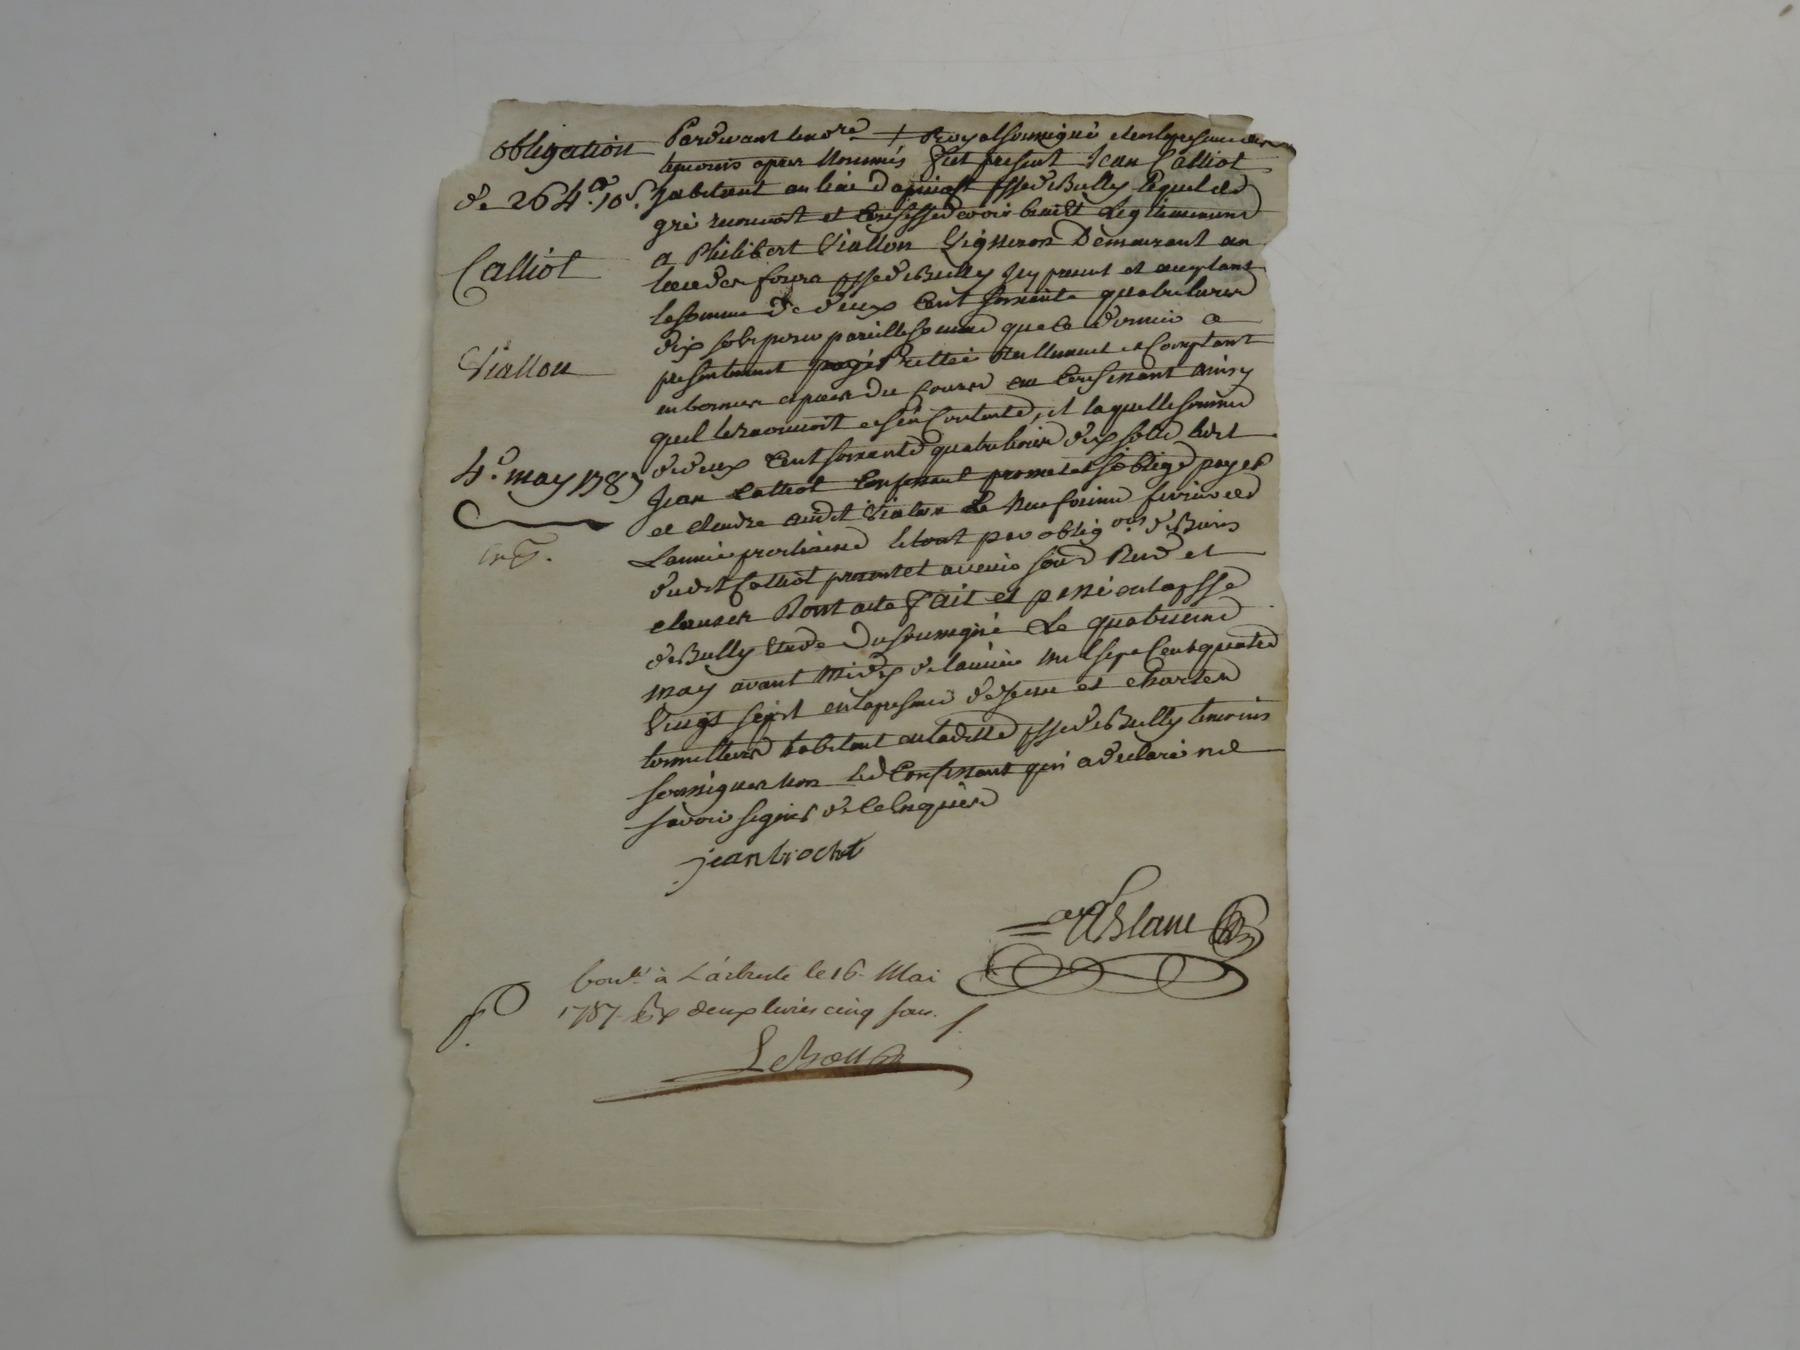 obligation
de 264.# 10.s
Calliot
Viallon
4.e may 1787
Pardevant le no.re Royal soussigné et en la presence des
temoins apres Nommés fut present Jean Calliot
habitant au lieu psse de Bully lequel de
gré reconnoit et Confesse devoir bien et Legitimement
a Philibert Viallon Vigneron Demeurant au
lieu des psse de Bully Icy present et acceptant
la somme De deux Cent soixante quatre livres
dix sols pour pareille somme que ce dernier a
presentement payé Prettée Reellement et Comptant
en bonnes especes du Cours au Confessant ainsy
quil le reconnoit et s'en Contente, et laquelle somme
de deux Cent soixante quatre livres dix sols ledit
Jean Calliot Confessant promet et s'oblige payer
et Rendre audit Vialon
Lannée prochaine le tout par oblig.ons de Biens
dudit Calliot present et avenir sous Rend et
clauses Dont acte Fait et passé en la psse
de Bully Etude Du soussigné Le quatrieme
may avant Midy de lannée Mil sept Cent quatre
Vingt sept en la presence de et Charles
habitant en ladite psse de Bully temoins
soussignés non led Confessant qui a declaré ne
savoir signer de ce Enquis
jean brochet
Cont.lé à L'arbresle le 16. Mai
1787. Rx deux livres cinq sous.